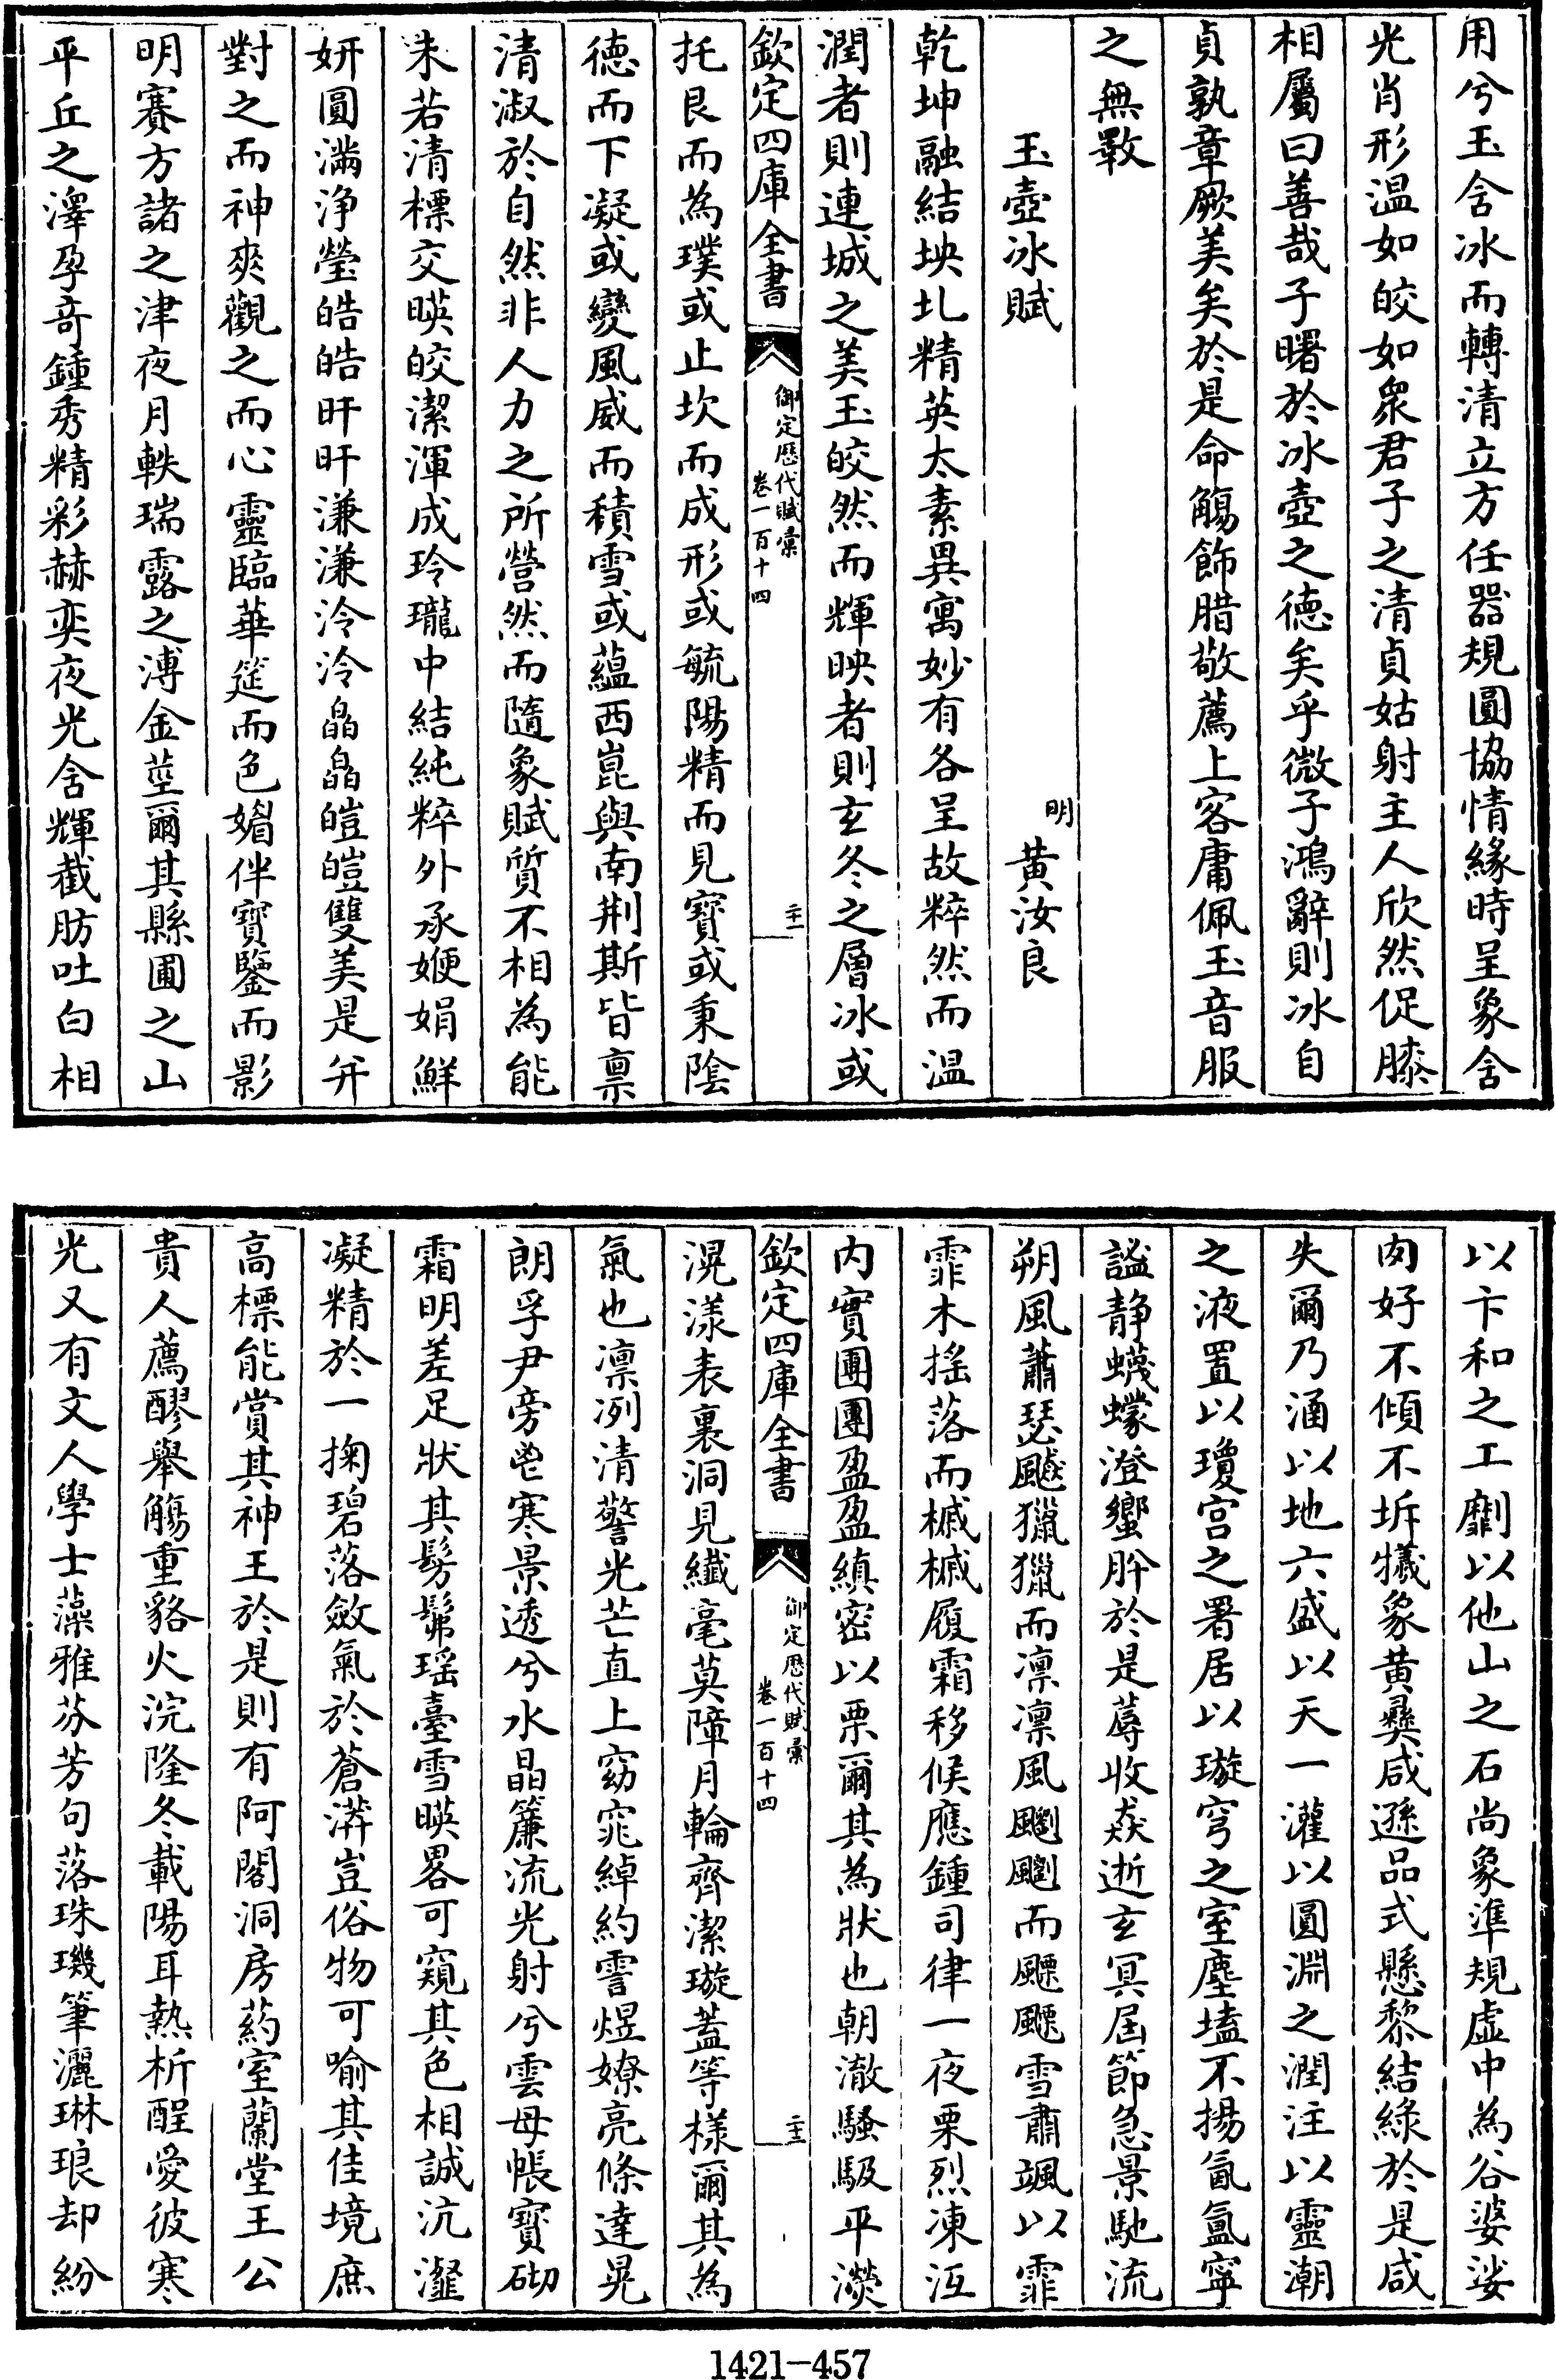 用兮玉含冰而轉清立方任器規圓協情緣時呈象含
光肖形温如皎如衆君子之清貞姑射主人欣然促膝
相屬曰善哉子曙於冰壺之徳矣乎微子鴻辭則冰自
貞孰章厥美矣於是命觴飾腊敬薦上客庸佩玉音服
之無斁
玉壺冰賦
明
黄汝良
乾坤融結坱圠精英太素異寓妙有各呈故粹然而温
潤者則連城之美玉皎然而輝映者則玄冬之層冰或
欽定四庫全書
御定歴代賦彙
卷一百十四
二十一
托艮而為璞或止坎而成形或毓陽精而見寳或秉陰
徳而下凝或變風威而積雪或藴西崑與南荆斯皆禀
清淑於自然非人力之所營然而隨象賦質不相為能
未若清標交暎皎潔渾成玲瓏中結純粹外承㛹娟鮮
妍圓滿浄瑩皓皓旰旰溓溓泠泠皛皛皚皚雙美是并
對之而神爽觀之而心靈臨華筵而色媚伴寳鑒而影
明賽方諸之津夜月軼瑞露之漙金莖爾其縣圃之山
平丘之澤孕竒鍾秀精彩赫奕夜光含輝截肪吐白相
以卞和之工劘以他山之石尚象準規虚中為谷婆娑
肉好不傾不坼犧象黄彞咸遜品式懸黎結緑於是咸
失爾乃涵以地六盛以天一灌以圓淵之潤注以靈潮
之液置以瓊宫之署居以璇穹之室塵壒不揚氤氲寧
謐静蠛蠓澄蠁肸於是蓐收猋逝玄冥屆節急景馳流
朔風蕭瑟飈獵獵而凛凛風飀飀而飈飈雪肅颯以霏
霏木揺落而槭槭履霜移候應鍾司律一夜栗烈凍沍
内實團團盈盈縝密以栗爾其為狀也朝澈騷騷平濙
欽定四庫全書
御定歴代賦彙
卷一百十四
二十二
滉漾表裏洞見纎毫莫障月輪齊潔璇葢等様爾其為
氣也凛冽清警光芒直上窈窕綽約霅煜嫽亮倏達晃
朗孚尹旁鬯寒景透兮水晶簾流光射兮雲母帳寳砌
霜明差足狀其髣髴瑶臺雪暎畧可窺其色相誠沆瀣
凝精於一掬碧落斂氣於蒼漭豈俗物可喻其佳境庶
高標能賞其神王於是則有阿閣洞房葯室蘭堂王公
貴人薦醪舉觴重貉火浣隆冬載陽耳熱析酲愛彼寒
光又有文人學士藻雅芬芳句落珠璣筆灑琳琅却紛
1421-457